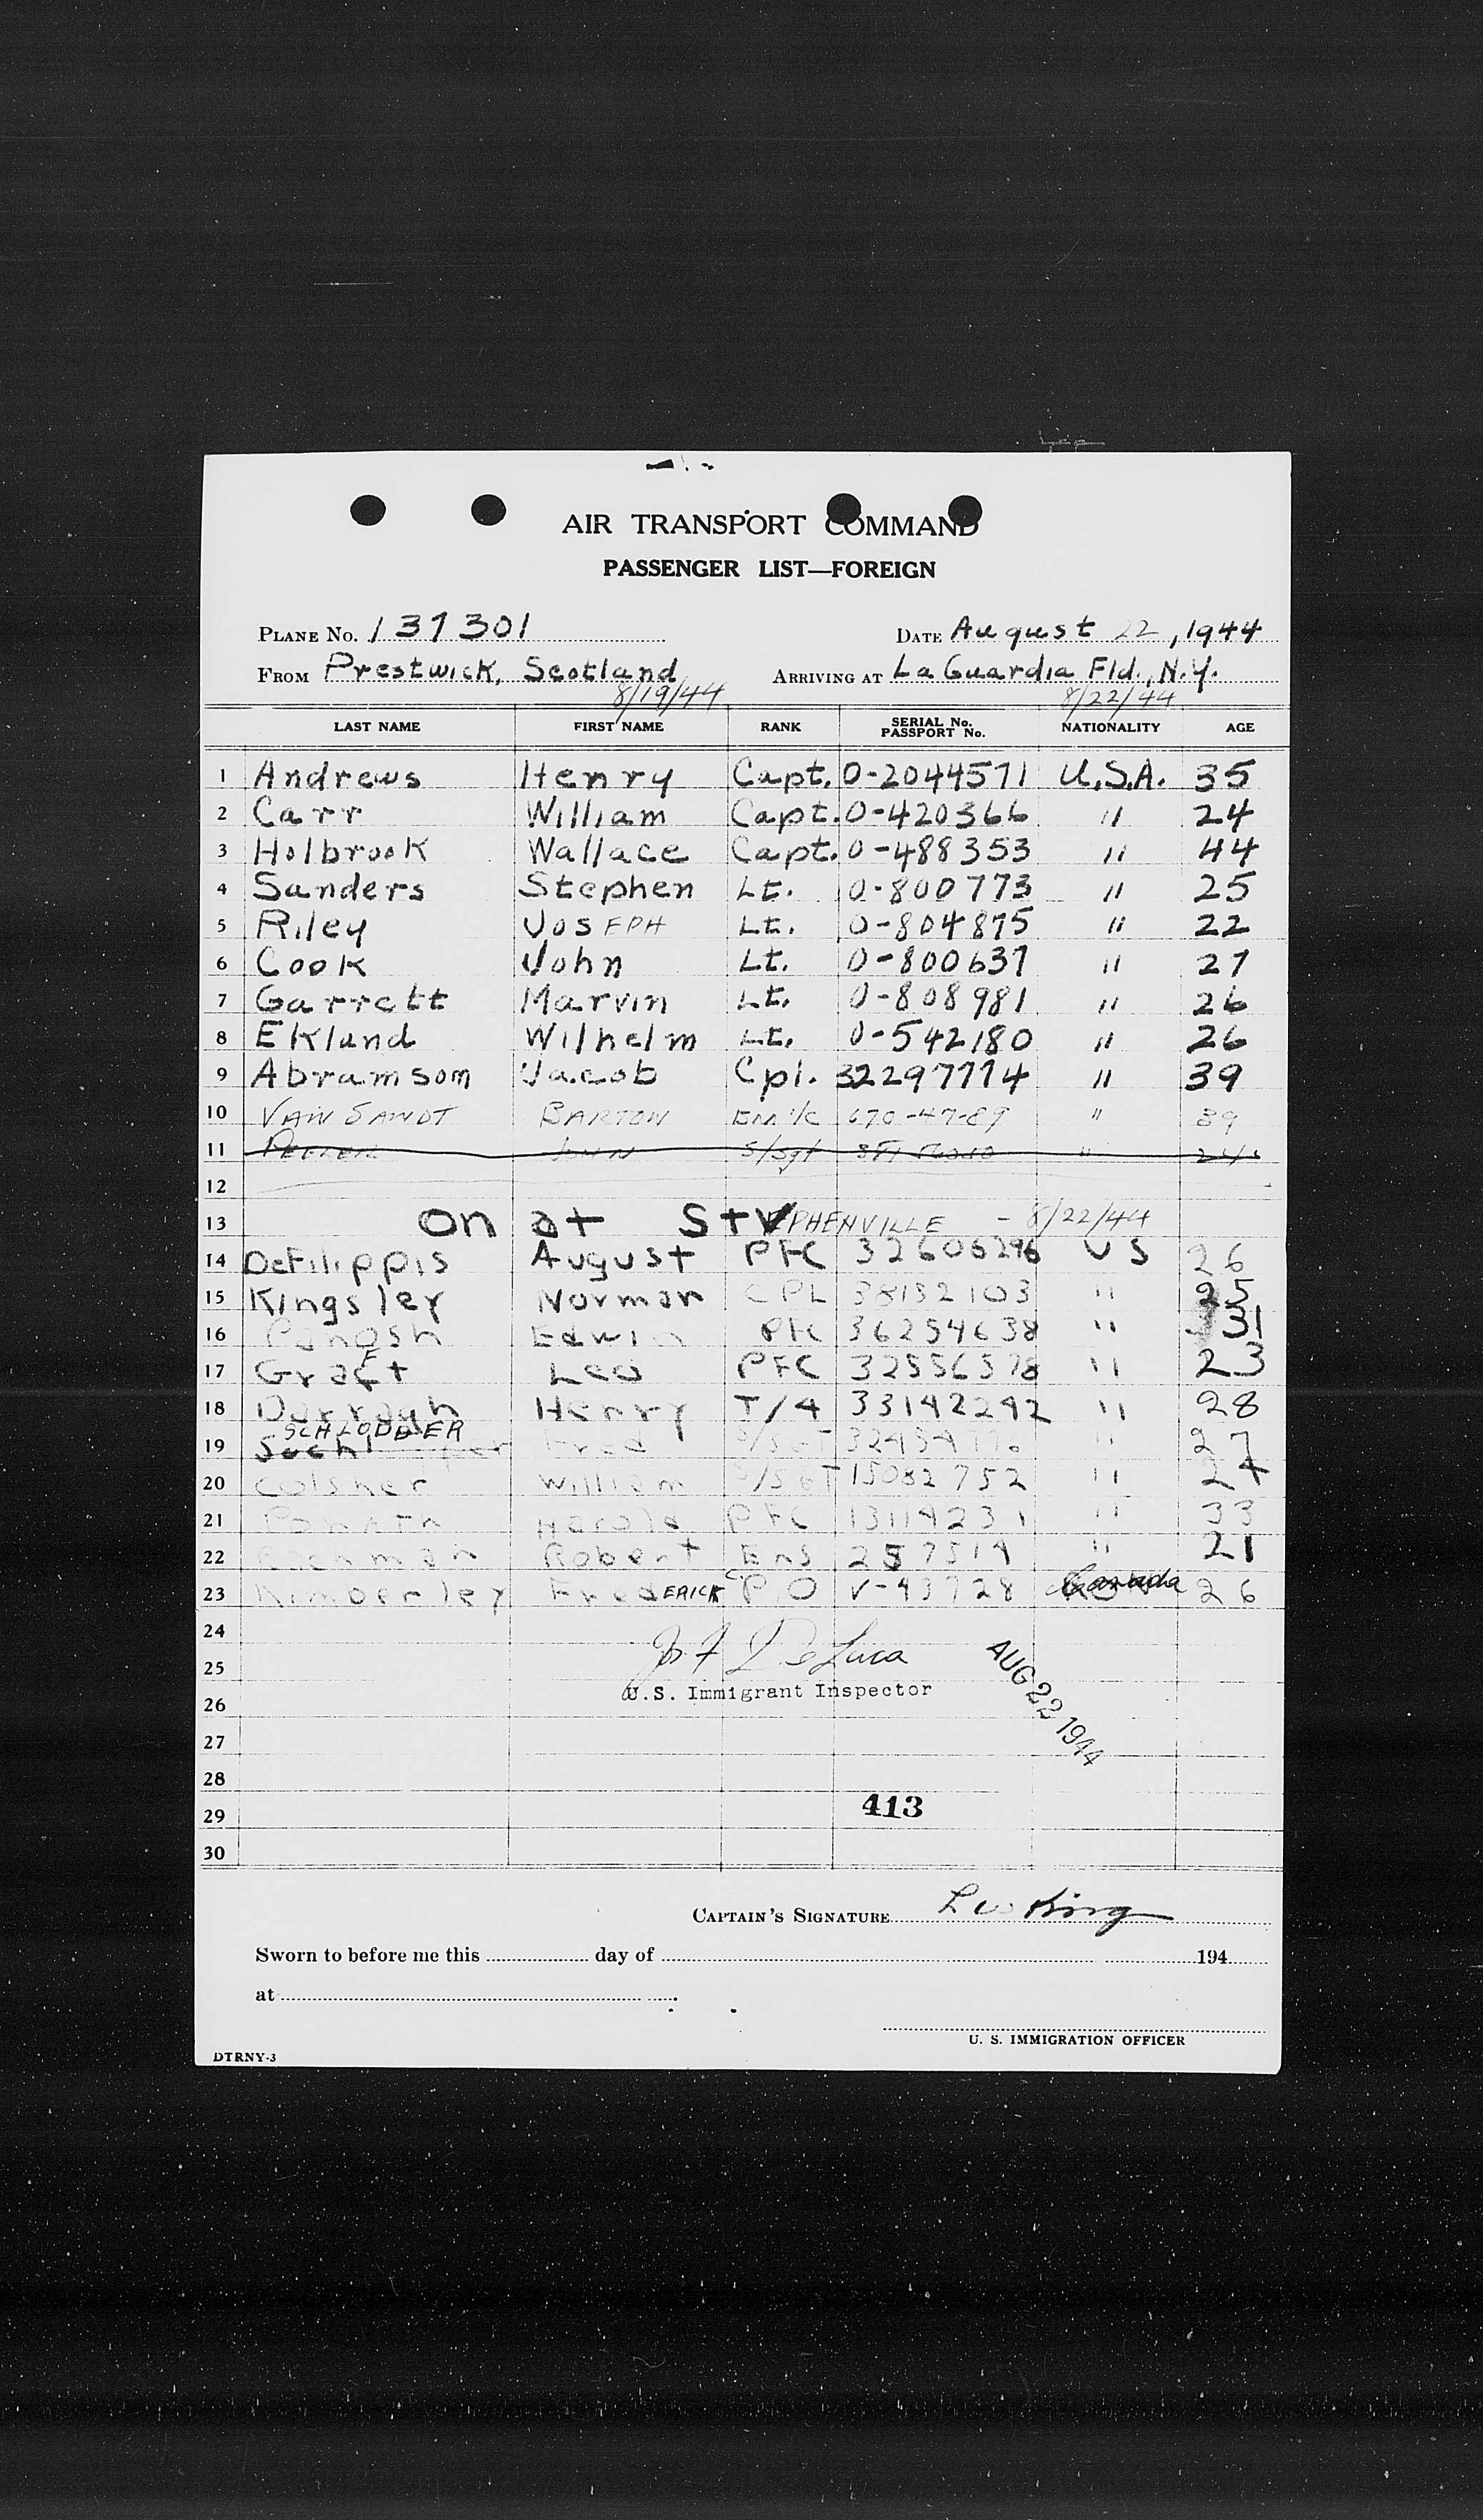 AIR TRANSPORT COMMAND
PASSENGER LIST—FOREIGN
PLANE No. 137301 DATE August 22, 1944
FROM Prestwick, Scotland ARRIVING AT La Guardia Fld., N.Y.
8/19/44 8/22/44
LAST NAME FIRST NAME RANK SERIAL No. PASSPORT No. NATIONALITY AGE
1 Andrews Henry Capt. O-2044571 U.S.A. 35
2 Carr William Capt. O-420366 " 24
3 Holbrook Wallace Capt. O-488353 " 44
4 Sanders Stephen Lt. O-800773 " 25
5 Riley JosEPH Lt. O-804875 " 22
6 Cook John Lt. O-800637 " 27
7 Garrett Marvin Lt. O-808981 " 26
8 Eklund Wilhelm Lt. O-542180 " 26
9 Abramsom Jacob Cpl. 32297774 " 39
10 VAN SANDT BARTON EM 1/c 670-47-89 " 39
11 JOHN S/Sgt "
12
13 on at STEPHENVILLE - 8/22/44
14 DeFilippis August PFC 32606296 US 26
15 Kingsley Norman CPL 38132103 " 25
16 Panosh Edwin PFC 36254638 " 31
17 Graft F Leo PFC 32556578 " 23
18 Darragh Henry T/4 33142292 " 28
SCHLODDER
19 Fred S/SGT " 27
20 Colsher William S/SGT 15082752 " 27
21 Harold PFC 13114231 " 33
22 Robert Ens 257514 " 21
23 Kimberley FredERICK P.O V-43728 Canada 26
24
25 De Luca
U.S. Immigrant Inspector
AUG 22 1944
26
27
28
29 413
30
CAPTAIN'S SIGNATURE King
Sworn to before me this day of 194
at
U. S. IMMIGRATION OFFICER
DTRNY-3